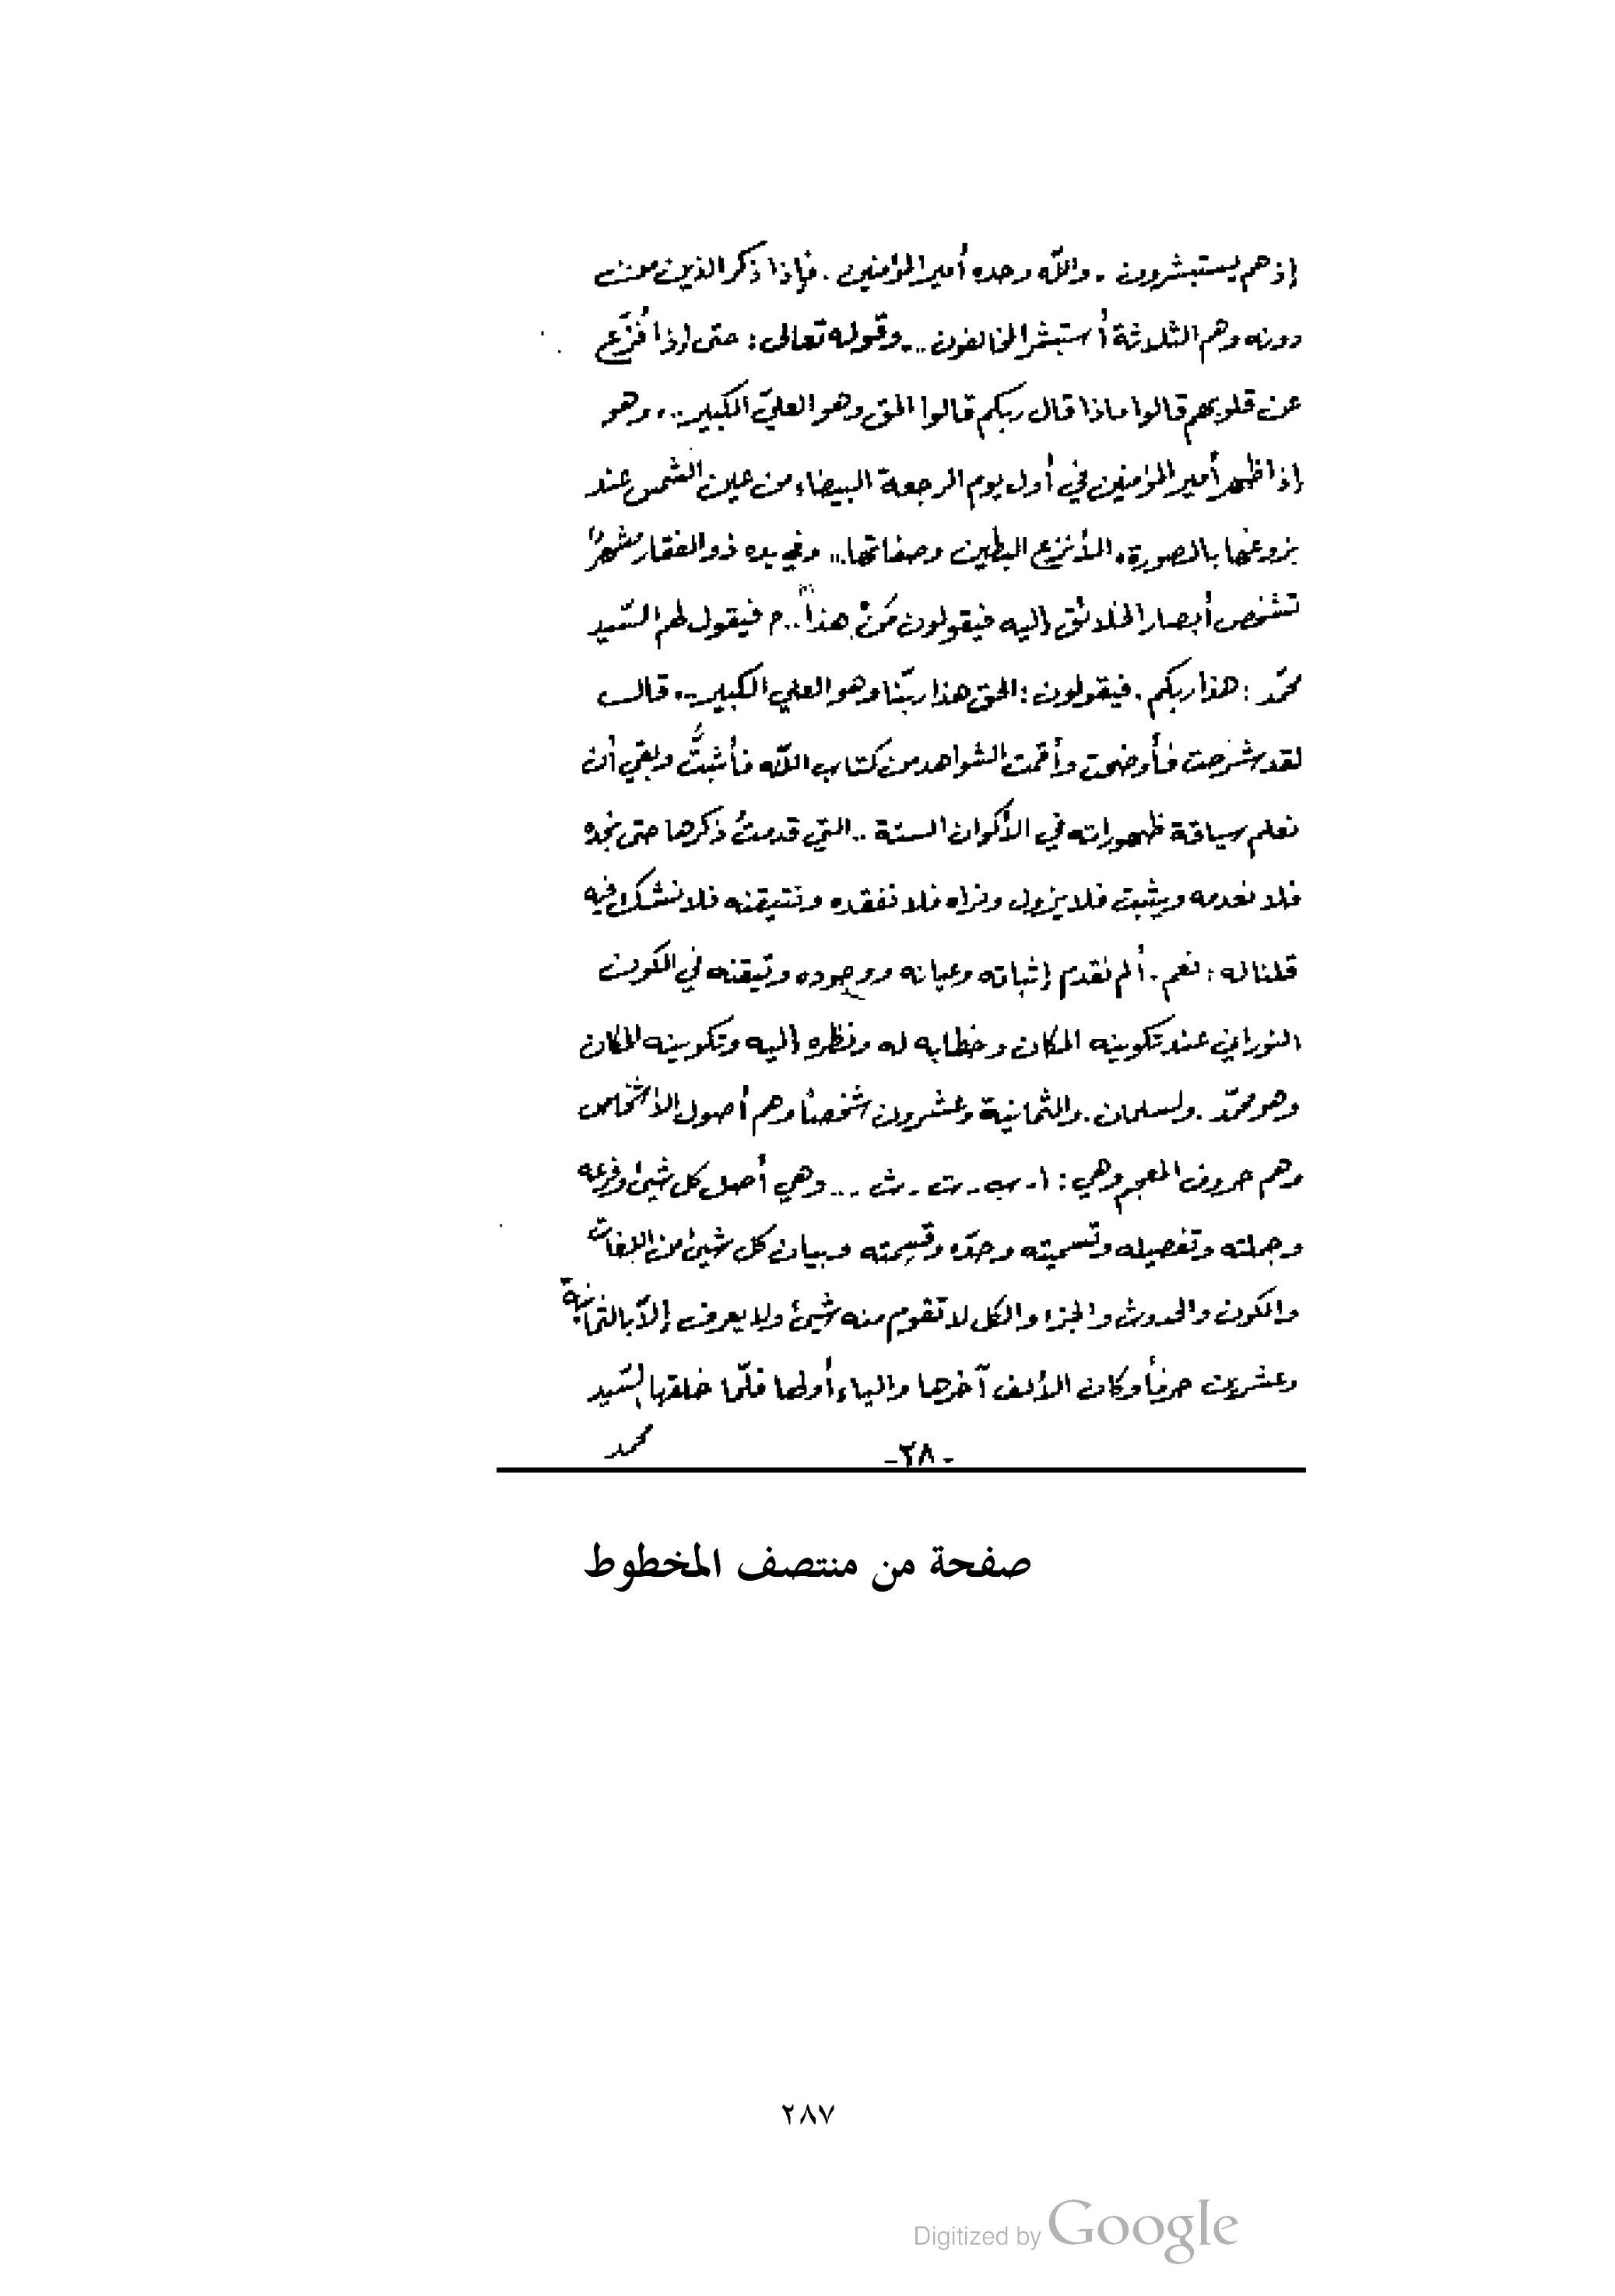 إذ هم يستبشرون . والله وحده أمير المؤمنين . فإذا ذكر الذين من
دونه وهم الثلاثة أستبشر المخالفون .. وقوله تعالى : حتى إذا فُزّع
عن قلوبهم قالوا ماذا قال ربكم قالوا الحق وهو العليّ الكبير .. وهو
إذا ظهر أمير المؤمنين في أول يوم الرجعة البيضاء من عين الشمس عند
بزوغها بالصورة الأنزع البطين وصفاتها .. وفي يده ذو الفقار مشهراً
تشخص أبصار الخلائق إليه فيقولون مَنْ هذا .. ؟ فيقول لهم السّيد
محمّد : هذا ربكم . فيقولون : الحق هذا ربّنا وهو العلي الكبير .. قال
لقد شرحت فأوضحت وأقمت الشواهد من كتاب الله فأثبتَّ وبقي أن
نعلم سياقة ظهوراته في الأكوان الستة .. التي قدمتُ ذكرها حتى نجده
فلا نعدمه ويثبت فلا يزول ونراه فلا نفقده ونتيقنه فلا نشكّ فيه
قلنا له : نعم . ألم نقدم إثباته وعيانه ووجوده وتيقنه في الكون
النوراني عند تكوينه المكان وخطابه له ونظره إليه وتكوينه المكان
وهو محمّد . ولسلمان . والثمانية وعشرون شخصاً وهم أصول الأشخاص
وهم حروف المعجم وهي : ا - ب - ت - ث ... وهي أصل كل شيئ وفرعه
وجملته وتفصيله وتسميته وحدّه وقسمته وبيان كل شيئ من اللغات
والكون والحدوث والجزء والكل لا تقوم منه شيئ ولا يعرف إلاّ بالثمانية
وعشرين حرفاً وكان الألف آخرها والياء أولها فلّما خلقها السّيد
محمد
- ٢٨ -
صفحة من منتصف المخطوط
٢٨٧
Digitized by Google